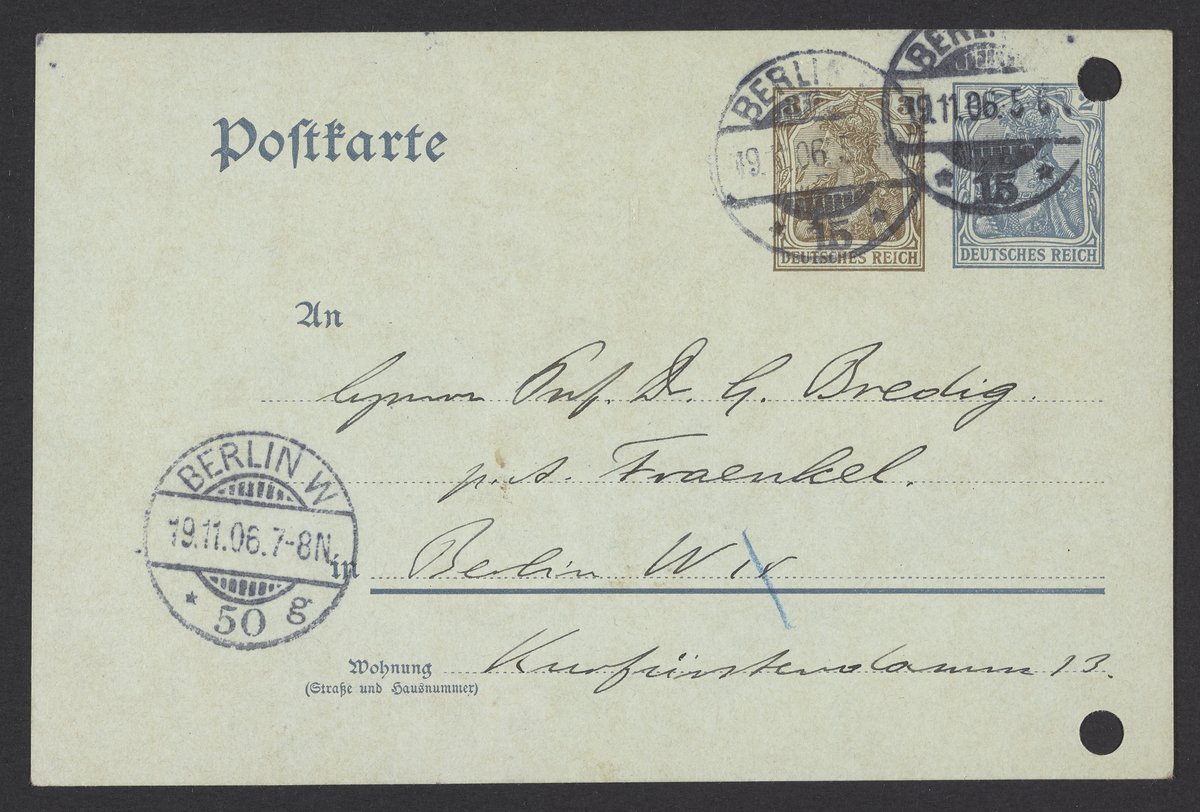 Postkarte
BERLIN
19.11.06.5
15
BERLIN
19.11.06.5-6
15
3 3
DEUTSCHES REICH
2
DEUTSCHES REICH
An
Herrn Prof. Dr. G. Bredig.
p. A. Fraenkel.
BERLIN W
19.11.06.7-8N.
* 50 g
in Berlin W
Wohnung Kurfürstendamm 13.
(Straße und Hausnummer)